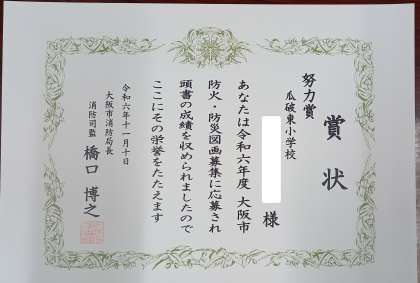 賞状
努力賞
瓜破東小学校
様
あなたは令和六年度 大阪市
防火・防災図画募集に応募され
頭書の成績を収められましたので
ここにその栄誉をたたえます
令和六年十一月十日
大阪市消防局長
消防司監 橋口博之